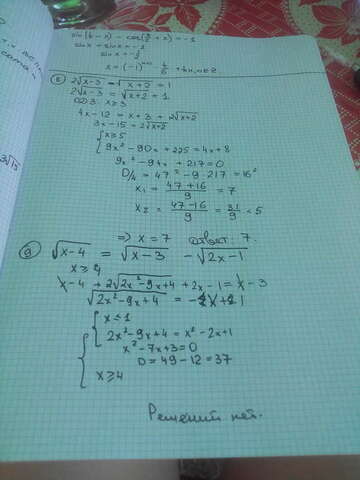 sin(π-x) - cos(π/2 + x) = -1
sinx + sinx = -1
sinx = -1/2
x = (-1)ⁿ⁺¹ π/6 + πn, n∈Z
⑧ 2√x-3 = √x+2 + 1
2√x-3 = √x+2 + 1.
ОДЗ: x≥3
4x-12 = x+3 + 2√x+2
3x-15 = 2√x+2
{ x≥5
9x² - 90x + 225 = 4x+8
9x² - 94x + 217 = 0
D/4 = 47² - 9·217 = 16²
x₁ = 47+16/9 = 7
x₂ = 47-16/9 = 31/9 < 5
=> x = 7 Ответ: 7.
⑨ √x-4 = √x-3 - √2x-1
x≥4
x-4 + 2√2x²-9x+4 + 2x-1 = x-3
√2x²-9x+4 = -x+1
{ x≤1
2x²-9x+4 = x²-2x+1
x²-7x+3=0
D = 49-12 = 37
x≥4
Решений нет.